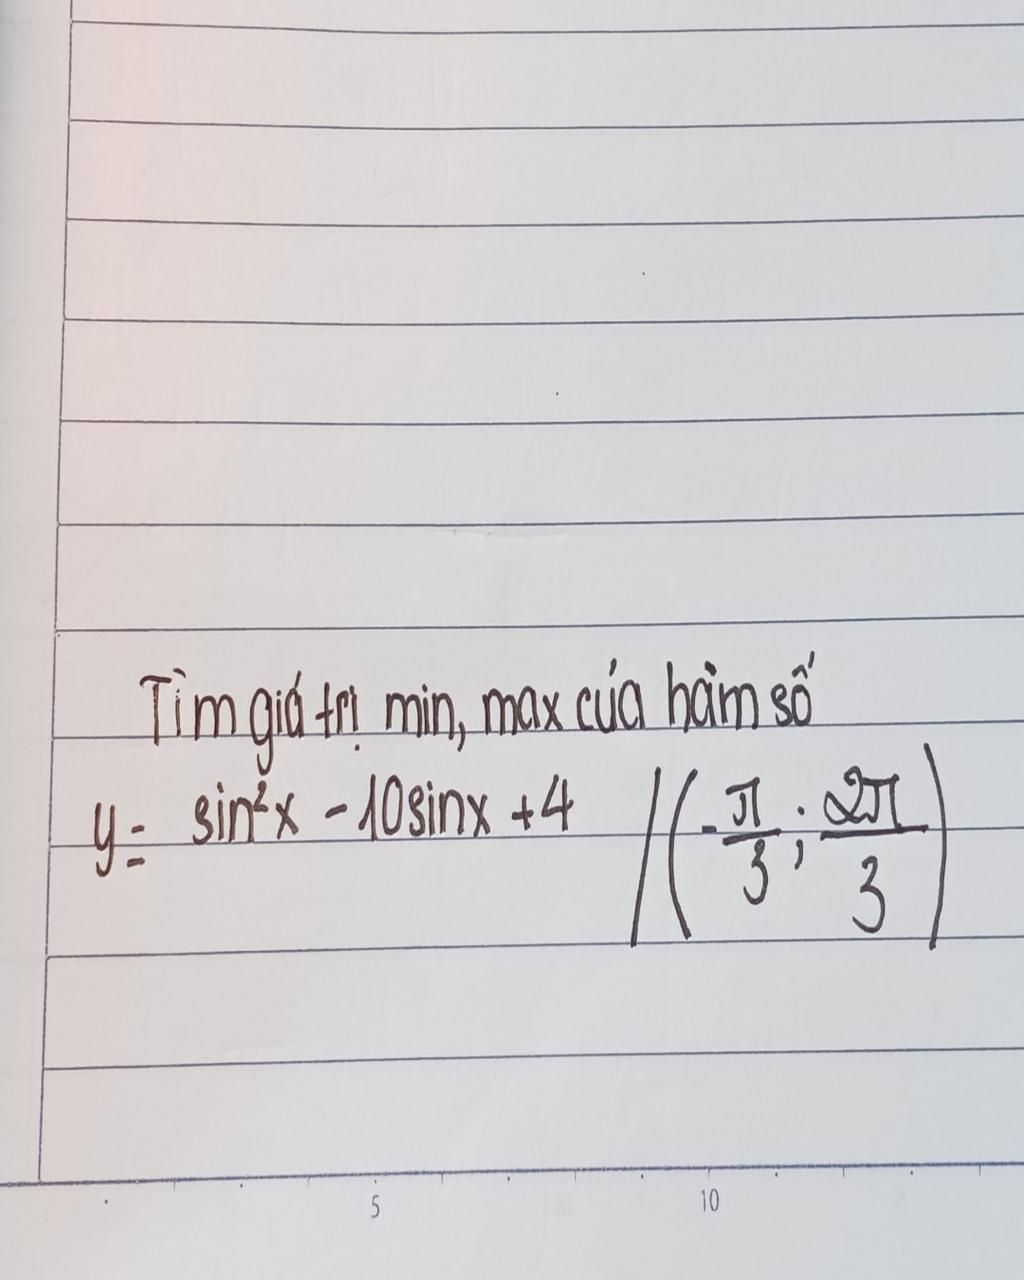 Tìm giá trị min, max của hàm số
y = sin²x - 10sinx + 4 /(-π/3; 2π/3)
5 10